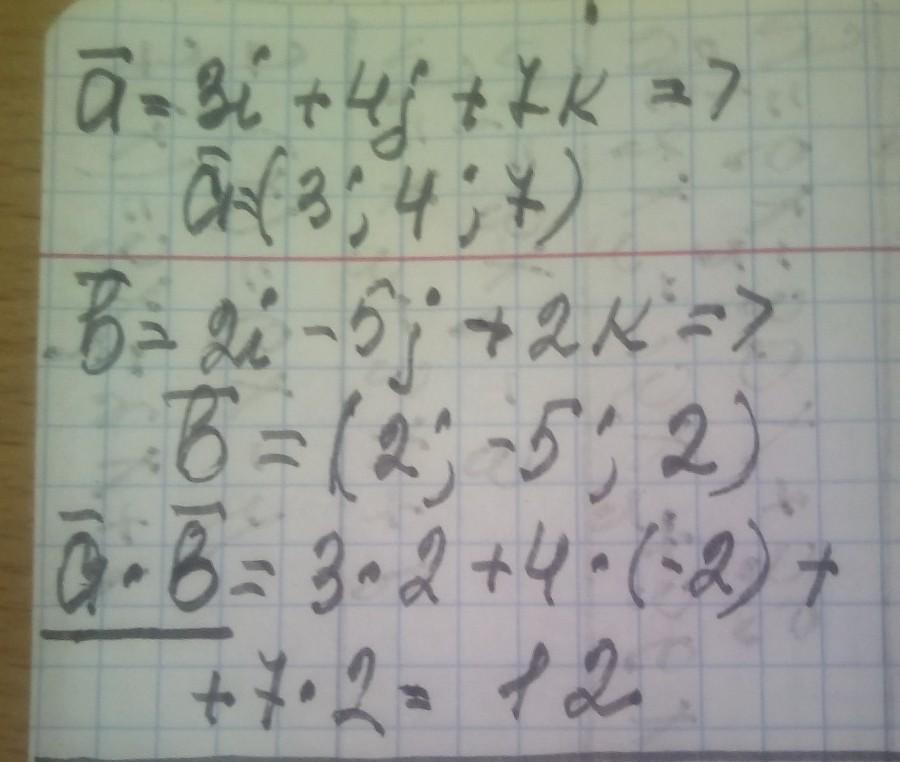 a̅ = 3i + 4j + 7k =>
a̅=(3; 4; 7)
b̅ = 2i - 5j + 2k =>
b̅ = (2; -5; 2)
a̅ · b̅ = 3·2 + 4·(-2) +
+ 7·2 = 12